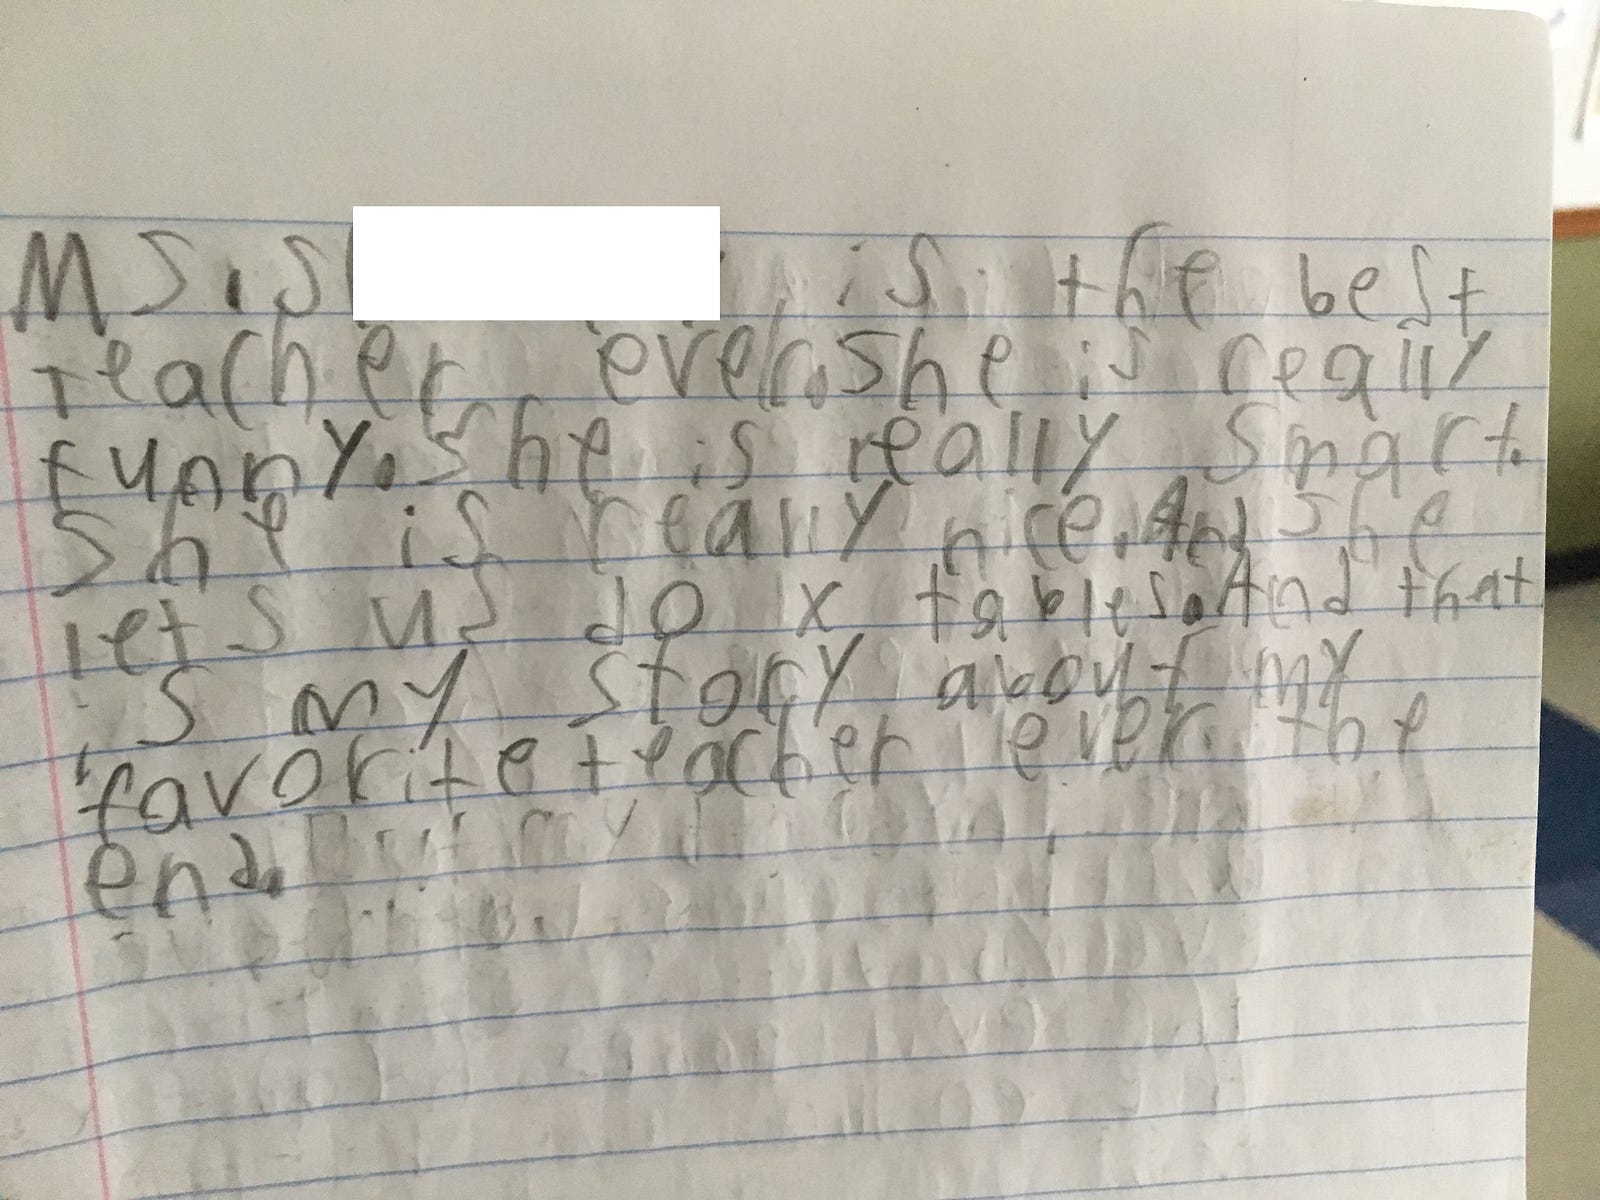 Ms. S is the best
teacher ever. She is really
funny. She is really smart.
She is really nice. And she
lets us do x tables. And that
is my story about my
favorite teacher ever. the
end.